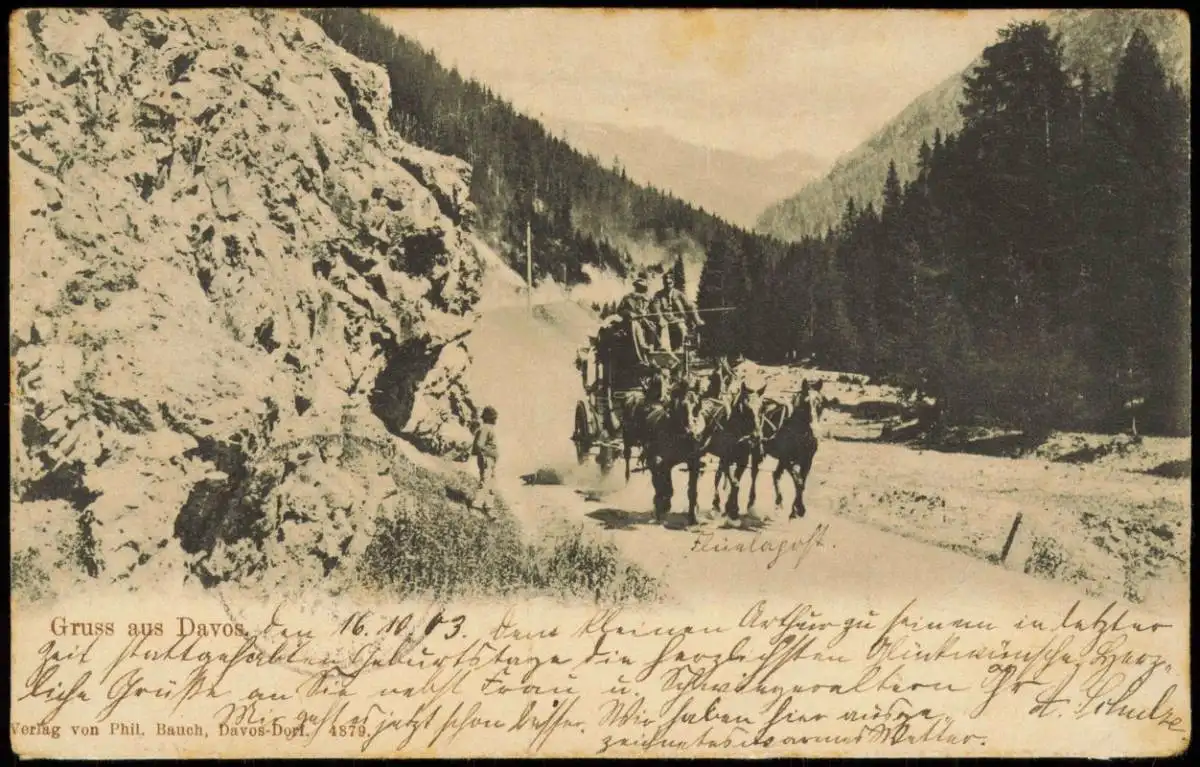 Flüelapost.
Gruss aus Davos, den 16.10.03. Dem kleinen Arthur zu seinem in letzter
Zeit stattgehabten Geburtstage die herzlichsten Glückwünsche. Herz-
liche Grüße an Sie nebst Frau u. Schwiegeraltern Ihr A. Schulze
Mir geht es jetzt schon besser. Wir haben hier ausge-
Verlag von Phil. Bauch, Davos-Dorf. 4879.
zeichnetes warmes Wetter.